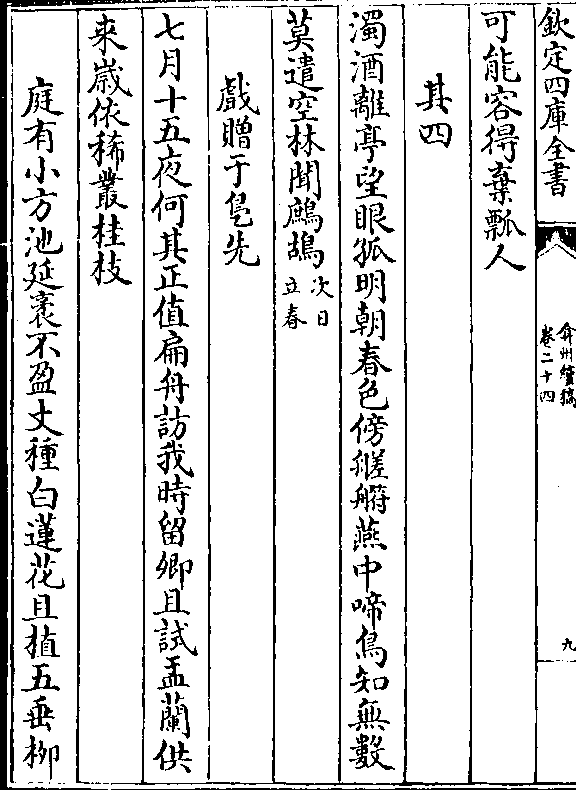 欽定四庫全書
弇州續稿
卷二十四
九
可能容得棄瓢人
其四
濁酒離亭望眼孤明朝春色傍艖燕中啼鳥知無數
莫遣空林聞鷓鴣
次日
立春
戲贈于鳬先
七月十五夜何其正值扁舟訪我時留卿且試盂蘭供
来嵗依稀叢桂枝
庭有小方池延袤不盈丈種白蓮花且植五垂栁